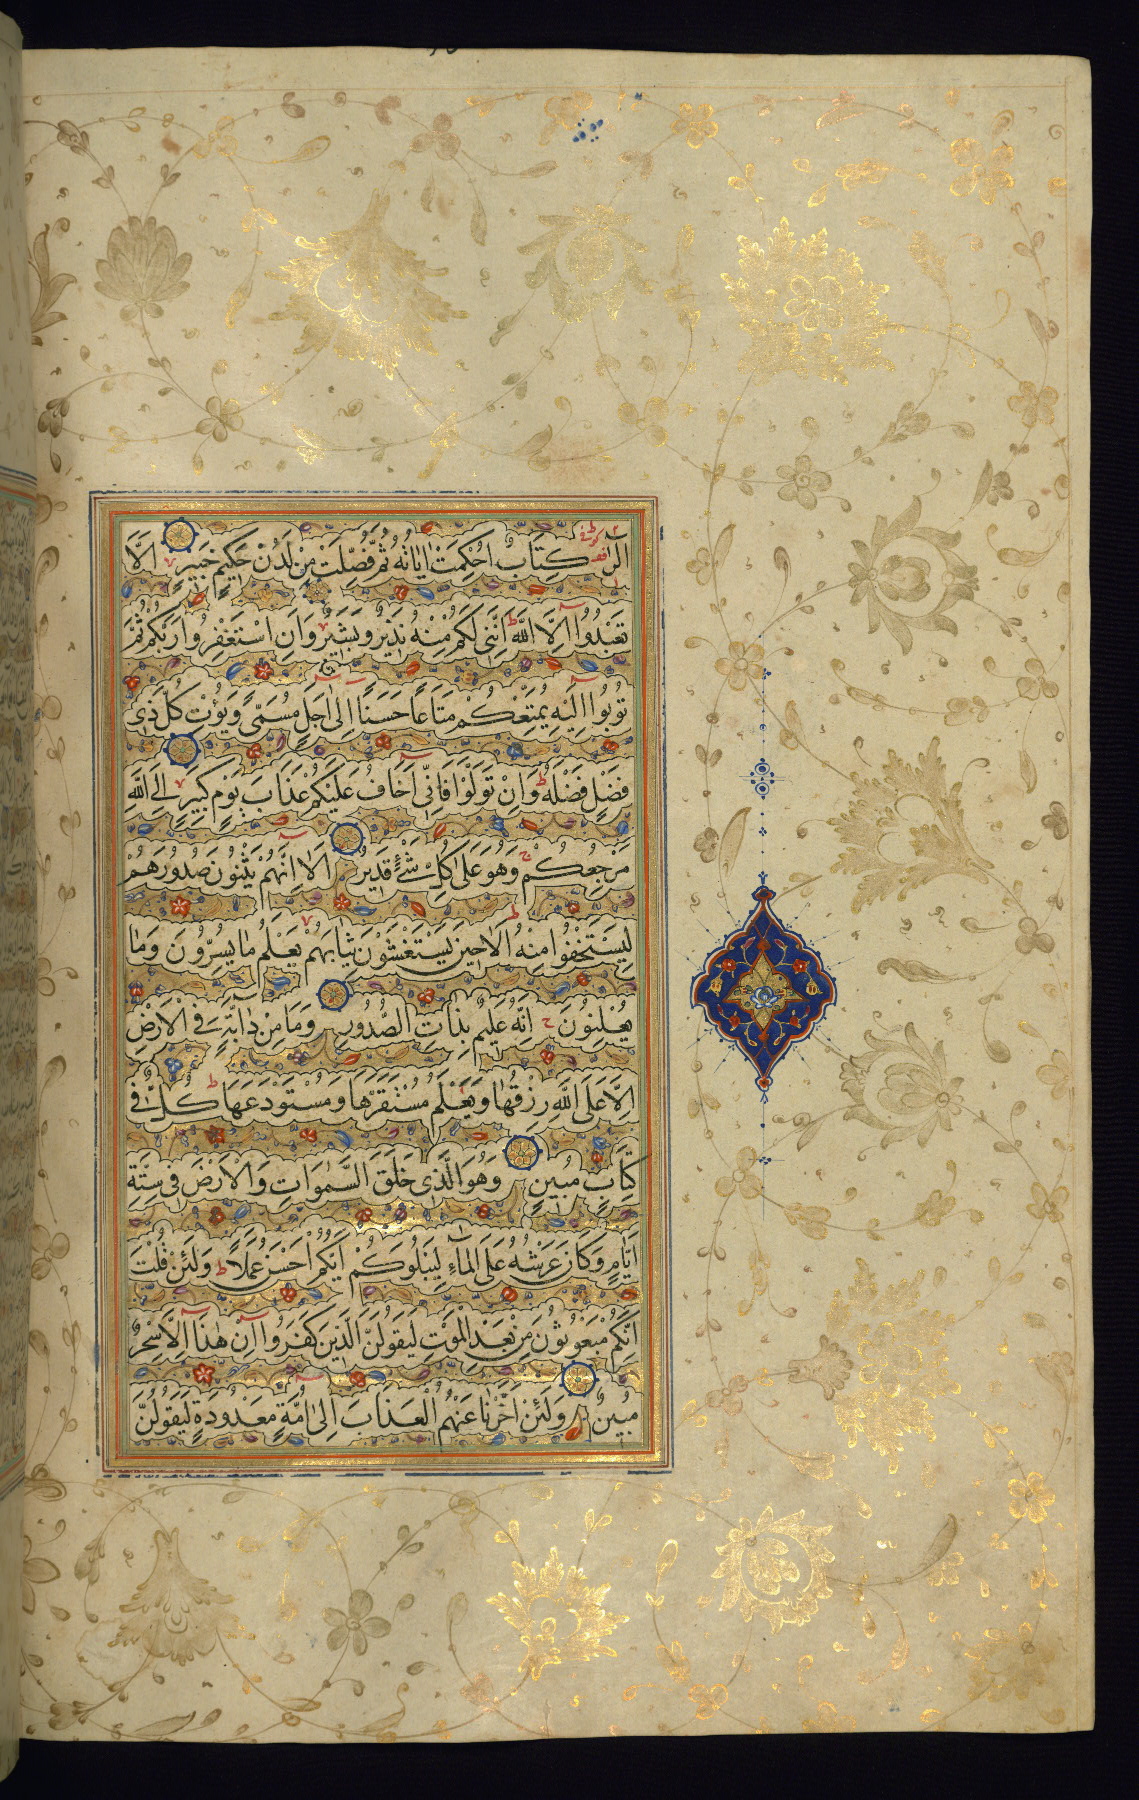 الٓرٰ كِتَابٌ اُحْكِمَتْ اٰيَاتُهُ ثُمَّ فُصِّلَتْ مِنْ لَدُنْ حَكِيمٍ خَبِيرٍ اَلَّا
تَعْبُدُوا اِلَّا اللّٰهَ اِنَّنِى لَكُمْ مِنْهُ نَذِيرٌ وَبَشِيرٌ وَاَنِ اسْتَغْفِرُوا رَبَّكُمْ ثُمَّ
تُوبُوا اِلَيْهِ يُمَتِّعْكُمْ مَتَاعًا حَسَنًا اِلٰى اَجَلٍ مُسَمًّى وَيُؤْتِ كُلَّ ذِى
فَضْلٍ فَضْلَهُ وَاِنْ تَوَلَّوْا فَاِنِّى اَخَافُ عَلَيْكُمْ عَذَابَ يَوْمٍ كَبِيرٍ اِلَى اللّٰهِ
مَرْجِعُكُمْ وَهُوَ عَلٰى كُلِّ شَىْءٍ قَدِيرٌ اَلَا اِنَّهُمْ يَثْنُونَ صُدُورَهُمْ
لِيَسْتَخْفُوا مِنْهُ اَلَا حِينَ يَسْتَغْشُونَ ثِيَابَهُمْ يَعْلَمُ مَا يُسِرُّونَ وَمَا
يُعْلِنُونَ اِنَّهُ عَلِيمٌ بِذَاتِ الصُّدُورِ وَمَا مِنْ دَابَّةٍ فِى الْاَرْضِ
اِلَّا عَلَى اللّٰهِ رِزْقُهَا وَيَعْلَمُ مُسْتَقَرَّهَا وَمُسْتَوْدَعَهَا كُلٌّ فِى
كِتَابٍ مُبِينٍ وَهُوَ الَّذِى خَلَقَ السَّمٰوَاتِ وَالْاَرْضَ فِى سِتَّةِ
اَيَّامٍ وَكَانَ عَرْشُهُ عَلَى الْمَاءِ لِيَبْلُوَكُمْ اَيُّكُمْ اَحْسَنُ عَمَلًا وَلَئِنْ قُلْتَ
اِنَّكُمْ مَبْعُوثُونَ مِنْ بَعْدِ الْمَوْتِ لَيَقُولَنَّ الَّذِينَ كَفَرُوا اِنْ هٰذَا اِلَّا سِحْرٌ
مُبِينٌ وَلَئِنْ اَخَّرْنَا عَنْهُمُ الْعَذَابَ اِلٰى اُمَّةٍ مَعْدُودَةٍ لَيَقُولُنَّ